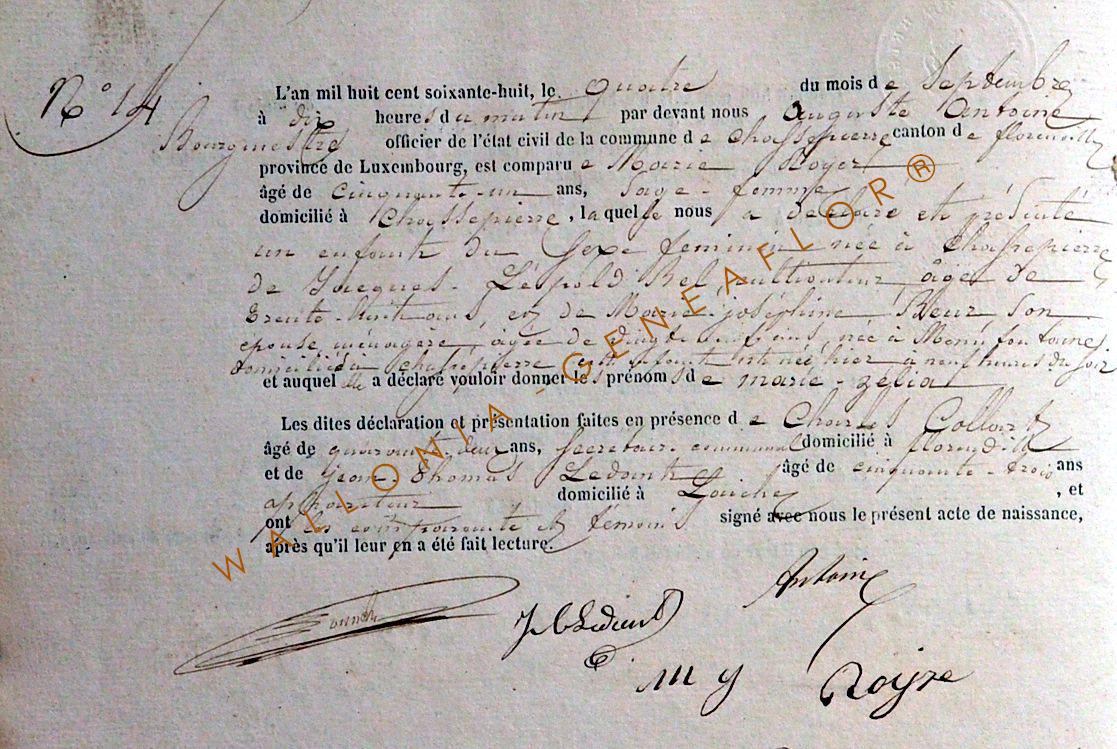 N° 14
L'an mil huit cent soixante-huit, le quatre du mois de Septembre
à dix heures du matin par devant nous Auguste Antoine
Bourgmestre officier de l'état civil de la commune de Chassepierre canton de florenville
province de Luxembourg, est comparue Marie Royer
âgé de Cinquante-un ans, Sage-femme
domicilié à Chassepierre, laquelle nous a déclaré et présenté
un enfant du Sexe feminin née à Chassepierre
de Jacques-Léopold Bel, cultivateur âgé de
trente-huit ans, et de Marie-joséphine son
épouse ménagère, âgée de ans, née à
domiciliés à Chassepierre, née hier à neuf heures du soir
et auquel elle a déclaré vouloir donner les prénoms de marie-zélia
Les dites déclaration et présentation faites en présence de Charles
âgé de quarante-deux ans, Secretaire communal domicilié à florenville
et de jean-thomas âgé de cinquante-trois ans
domicilié à , et
ont les comparante et témoins signé avec nous le présent acte de naissance,
après qu'il leur en a été fait lecture.
Antoine
m y Royre
WALLONIA-GENEAFLOR®